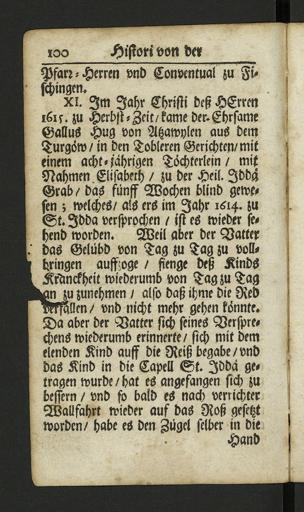 100 Histori von der
Pfarr-Herren vnd Conventual zu Fi-
schingen.
XI. Im Jahr Christi deß HErren
1615. zu Herbst-Zeit/kame der Ehrsame
Gallus Hug von Atzawylen aus dem
Turgöw/ in den Tobleren Gerichten/mit
einem acht-jährigen Töchterlein / mit
Nahmen Elisabeth / zu der Heil. Iddå
Grab/ das fünff Wochen blind gewe-
sen; welches/ als ers im Jahr 1614. zu
St. Idda versprochen / ist es wieder se-
hend worden. Weil aber der Vatter
das Gelübd von Tag zu Tag zu voll-
bringen auffzoge / fienge deß Kinds
Kranckheit wiederumb von Tag zu Tag
an zu zunehmen / also daß ihme die Red
verfallen/ vnd nicht mehr gehen könnte.
Da aber der Vatter sich seines Verspre-
chens wiederumb erinnerte/ sich mit dem
elenden Kind auff die Reiß begabe/vnd
das Kind in die Capell St. Iddå ge-
tragen wurde/ hat es angefangen sich zu
bessern/ vnd so bald es nach verrichter
Wallfahrt wieder auf das Roß gesetzt
worden/ habe es den Zügel selber in die
Hand